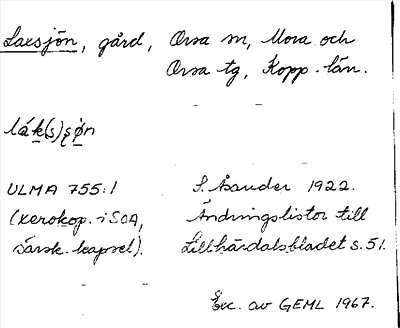 Laxsjön, gård, Orsa sn, Mora och
Orsa tg, Kopp. län.
lák(s)ṣǫ̀n
ULMA 755:1
(xerokop. i SOA,
särsk. kapsel).
S. Asander 1922.
Ändringslistor till
Lillhärdalsbladet s. 51.
Exc. av GEML 1967.